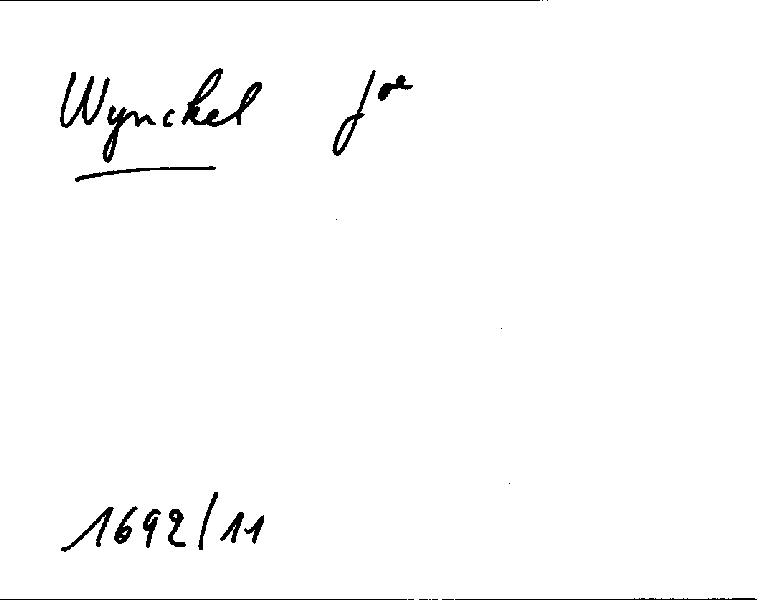 Wynckel Joe
1692/11